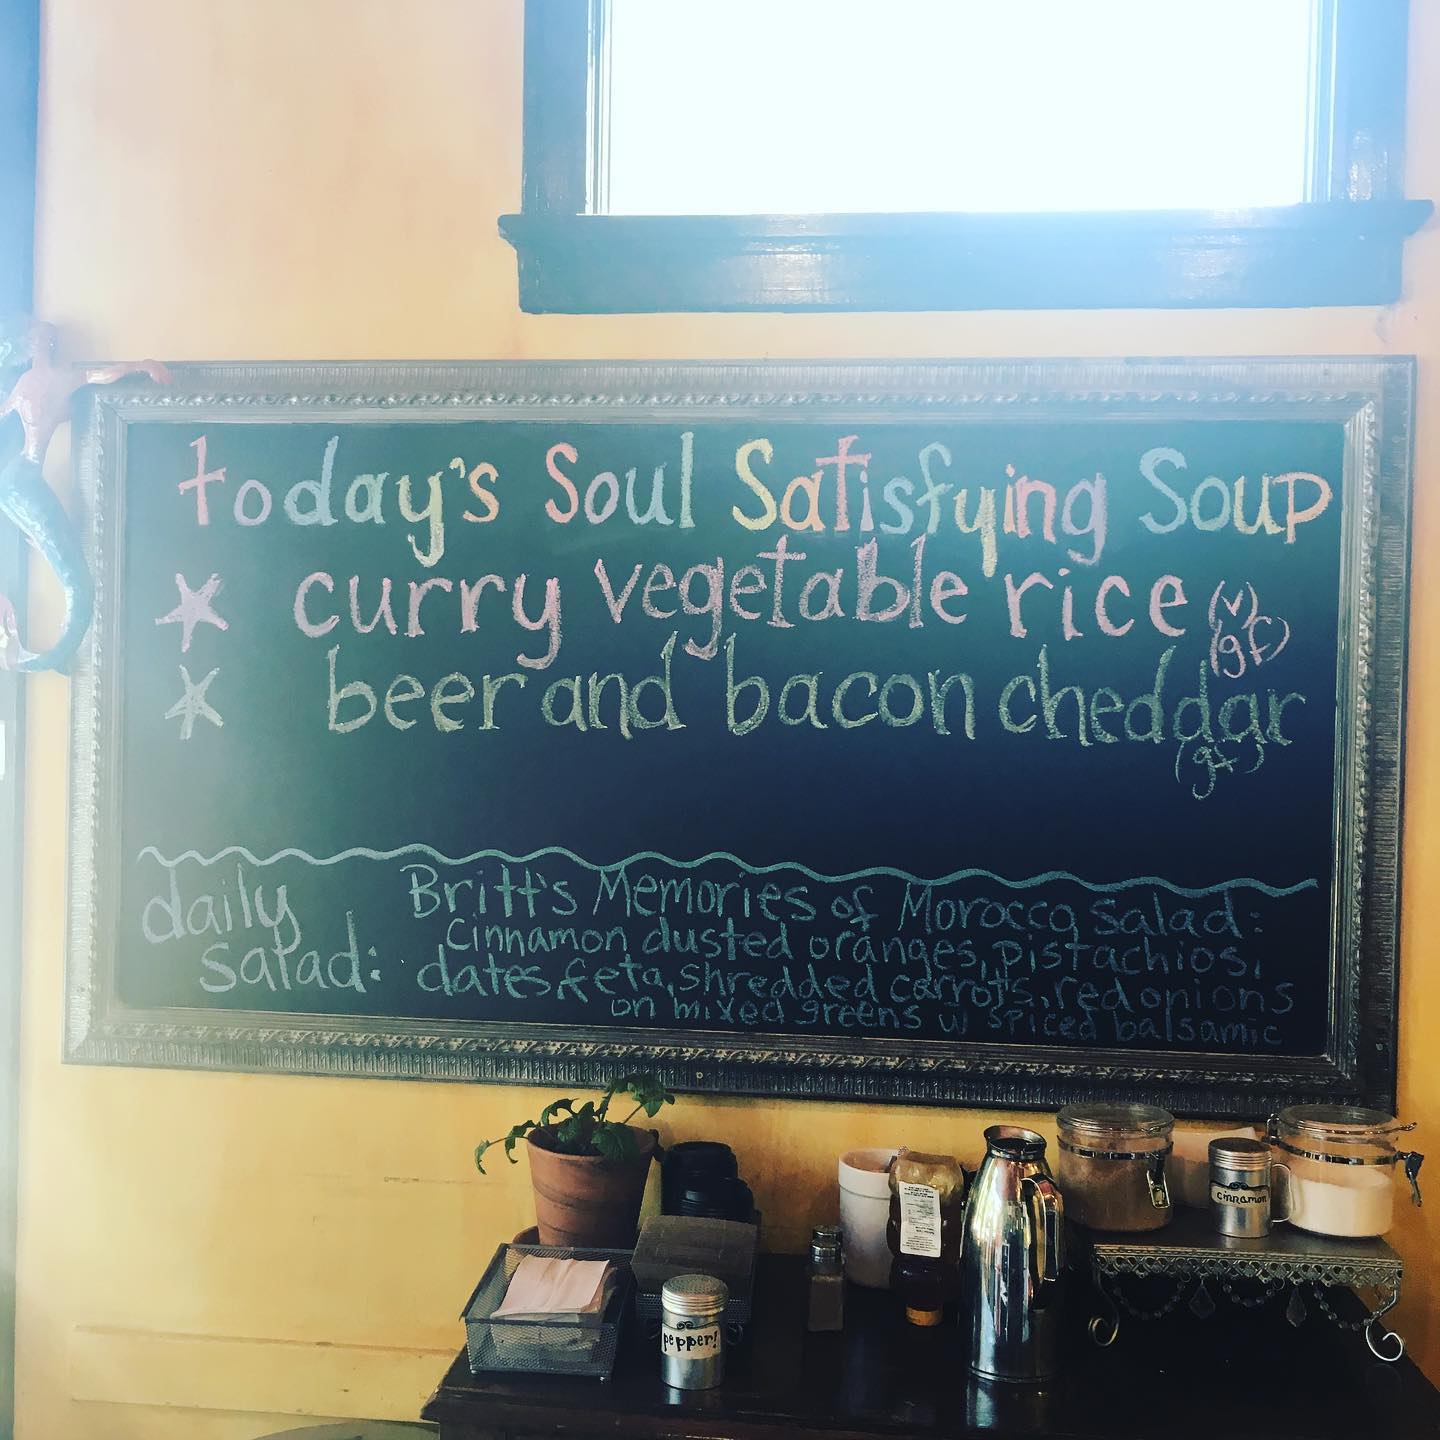 today's Soul Satisfying Soup
curry vegetable rice (v)
(gf)
beer and bacon cheddar
(gf)
daily
salad:
Britt's Memories of Morocco salad:
Cinnamon dusted oranges, pistachios,
dates, feta, shredded carrots, red onions
on mixed greens w spiced balsamic
cinnamon
pepper!